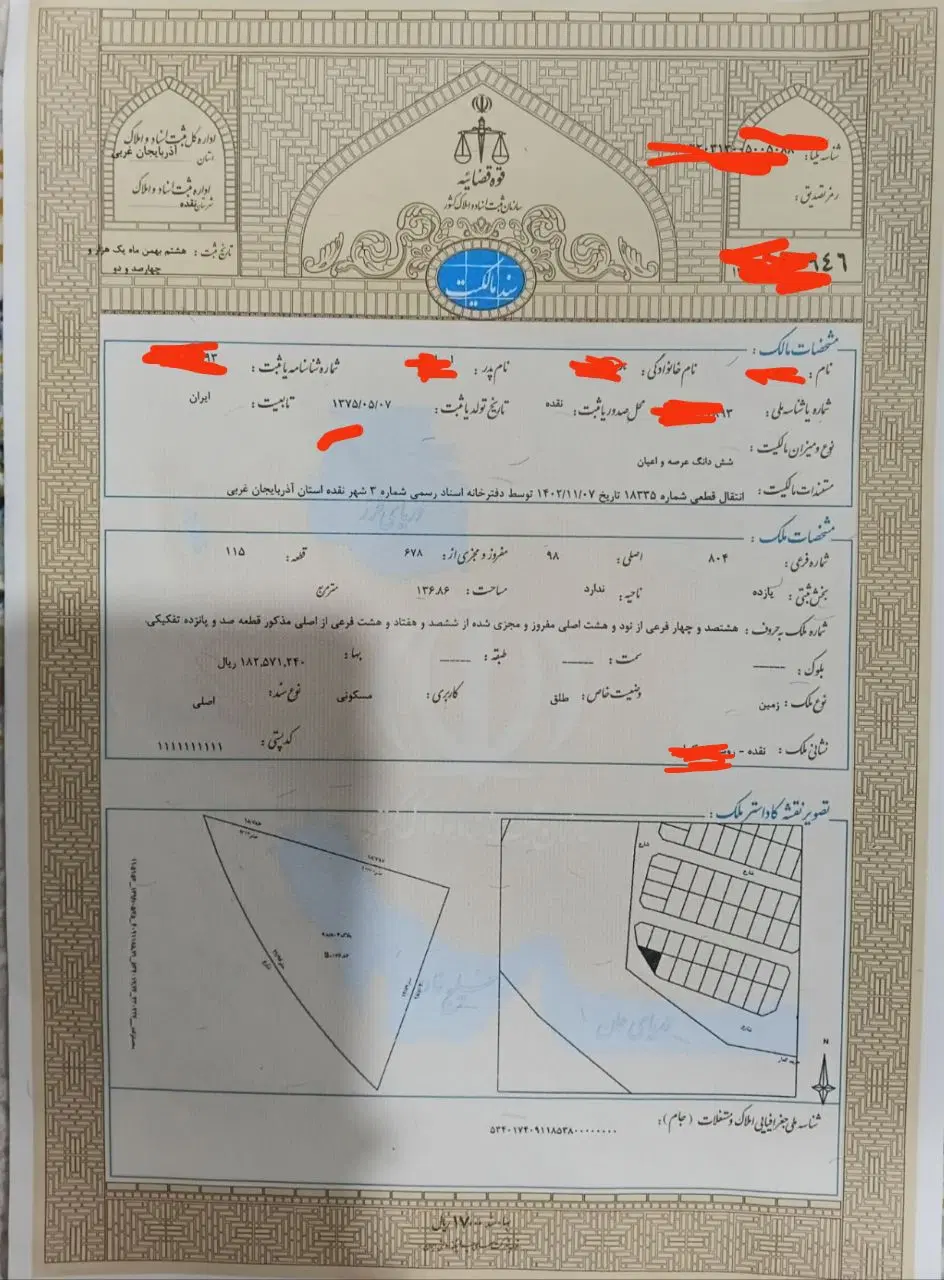 قوه قضائیه
سازمان ثبت اسناد و املاک کشور
سند مالکیت
شناسه یکتا:
رمز تصدیق:
۹۴۶
اداره کل ثبت اسناد و املاک
استان آذربایجان غربی
اداره ثبت اسناد و املاک
شهرستان نقده
تاریخ ثبت: هشتم بهمن ماه یک هزار و
چهارصد و دو
مشخصات مالک:
نام: نام خانوادگی: نام پدر: شماره شناسنامه یا ثبت: ۹۳
شماره یا شناسه ملی: ۹۳ محل صدور یا ثبت: نقده تاریخ تولد یا ثبت: ۱۳۷۵/۰۵/۰۷ تابعیت: ایران
نوع و میزان مالکیت: شش دانگ عرصه و اعیان
مستندات مالکیت: انتقال قطعی شماره ۱۸۳۳۵ تاریخ ۱۴۰۲/۱۱/۰۷ توسط دفترخانه اسناد رسمی شماره ۳ شهر نقده استان آذربایجان غربی
مشخصات ملک:
شماره فرعی: ۸۰۴ اصلی: ۹۸ مفروز و مجزی از: ۶۷۸ قطعه: ۱۱۵
بخش ثبتی: یازده ناحیه: ندارد مساحت: ۱۳۶.۸۶ مترمربع
شماره ملک به حروف: هشتصد و چهار فرعی از نود و هشت اصلی مفروز و مجزی شده از ششصد و هفتاد و هشت فرعی از اصلی مذکور قطعه صد و پانزده تفکیکی.
بلوک: سمت: طبقه: بها: ۱۸۲,۵۷۱,۲۴۰ ریال
نوع ملک: زمین وضعیت خاص: طلق کاربری: مسکونی نوع سند: اصلی
نشانی ملک: نقده - کدپستی: ۱۱۱۱۱۱۱۱۱۱
تصویر نقشه کاداستر ملک:
شارع
شارع
شارع
N
شارع
شناسه ملی جغرافیایی املاک و مستغلات (جام): ۵۳۴۰۱۷۴۰۹۱۱۸۵۳۸۰۰۰۰۰۰۰۰